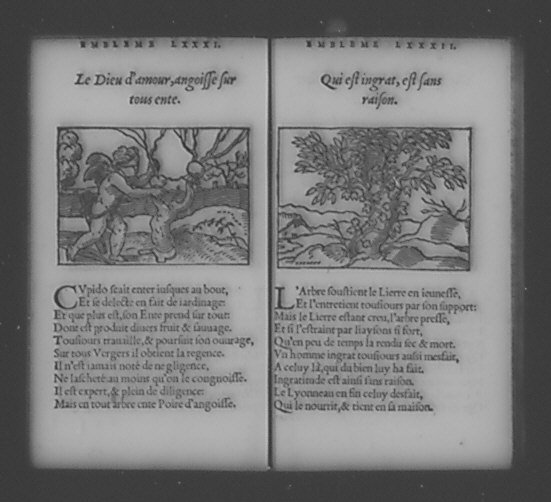 EMBLEME LXXXI.
Le Dieu d'amour, angoisse sur
tous ente.
CVpido scait enter iusques au bout,
Et se delecte en fait de iardinage:
Et que plus est, son Ente prend sur tout:
Dont est produit diuers fruit & sauuage.
Tousiours trauaille, & poursuit son ouurage,
Sur tous Vergers il obtient la regence.
Il n'est iamais noté de negligence,
Ne lascheté au moins qu'on le congnoisse.
Il est expert, & plein de diligence:
Mais en tout arbre ente Poire d'angoisse.
EMBLEME LXXXII.
Qui est ingrat, est sans
raison.
L'Arbre soustient le Lierre en ieunesse,
Et l'entretient tousiours par son support:
Mais le Lierre estant creu, l'arbre presse,
Et si l'estraint par liaysons si fort,
Qu'en peu de temps la rendu sec & mort.
Vn homme ingrat tousiours aussi mesfait,
A celuy là, qui du bien luy ha fait.
Ingratitude est ainsi sans raison.
Le Lyonneau en fin celuy desfait,
Qui le nourrit, & tient en sa maison.